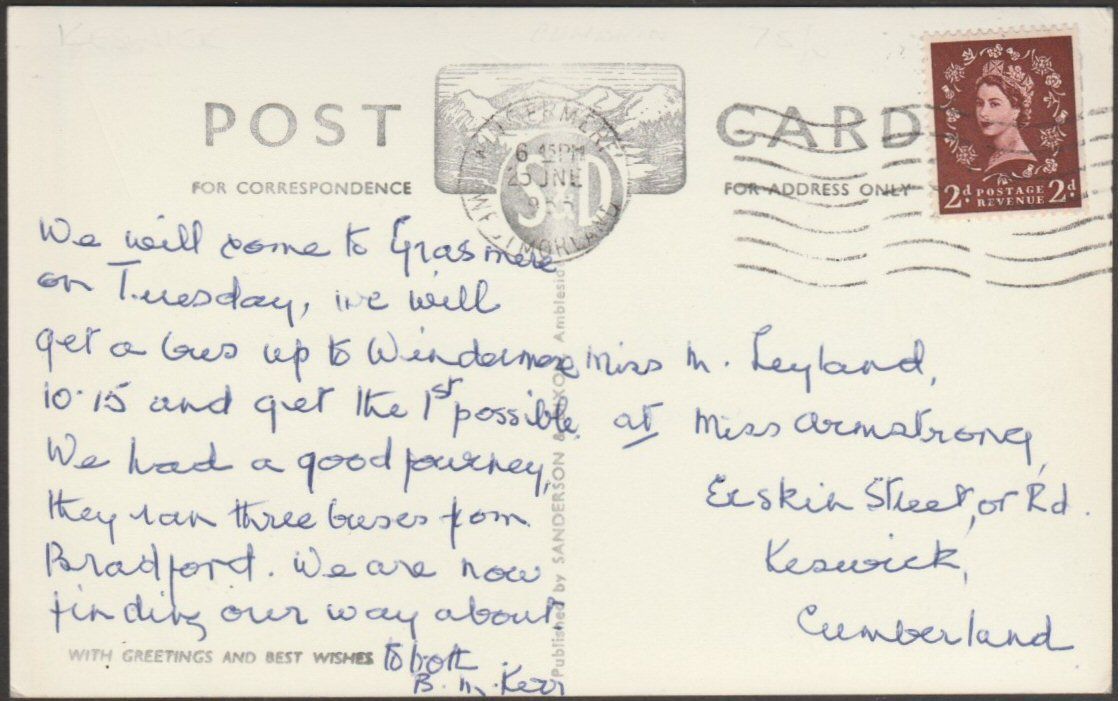 KESWICK
POST CARD
FOR CORRESPONDENCE
FOR ADDRESS ONLY
WINDERMERE
6 45PM
JNE
WESTMORLAND
S & D
2d POSTAGE 2d
REVENUE
We will come to Grasmere
on Tuesday, we will
get a bus up to Windermere
10.15 and get the 1st possible.
We had a good journey,
they ran three buses from
Bradford. We are now
finding our way about
WITH GREETINGS AND BEST WISHES to both
B. M. Kerr
Published by SANDERSON & DIXON Ambleside
Miss M. Leyland,
at Miss Armstrong,
Erskin Street, or Rd.
Keswick,
Cumberland